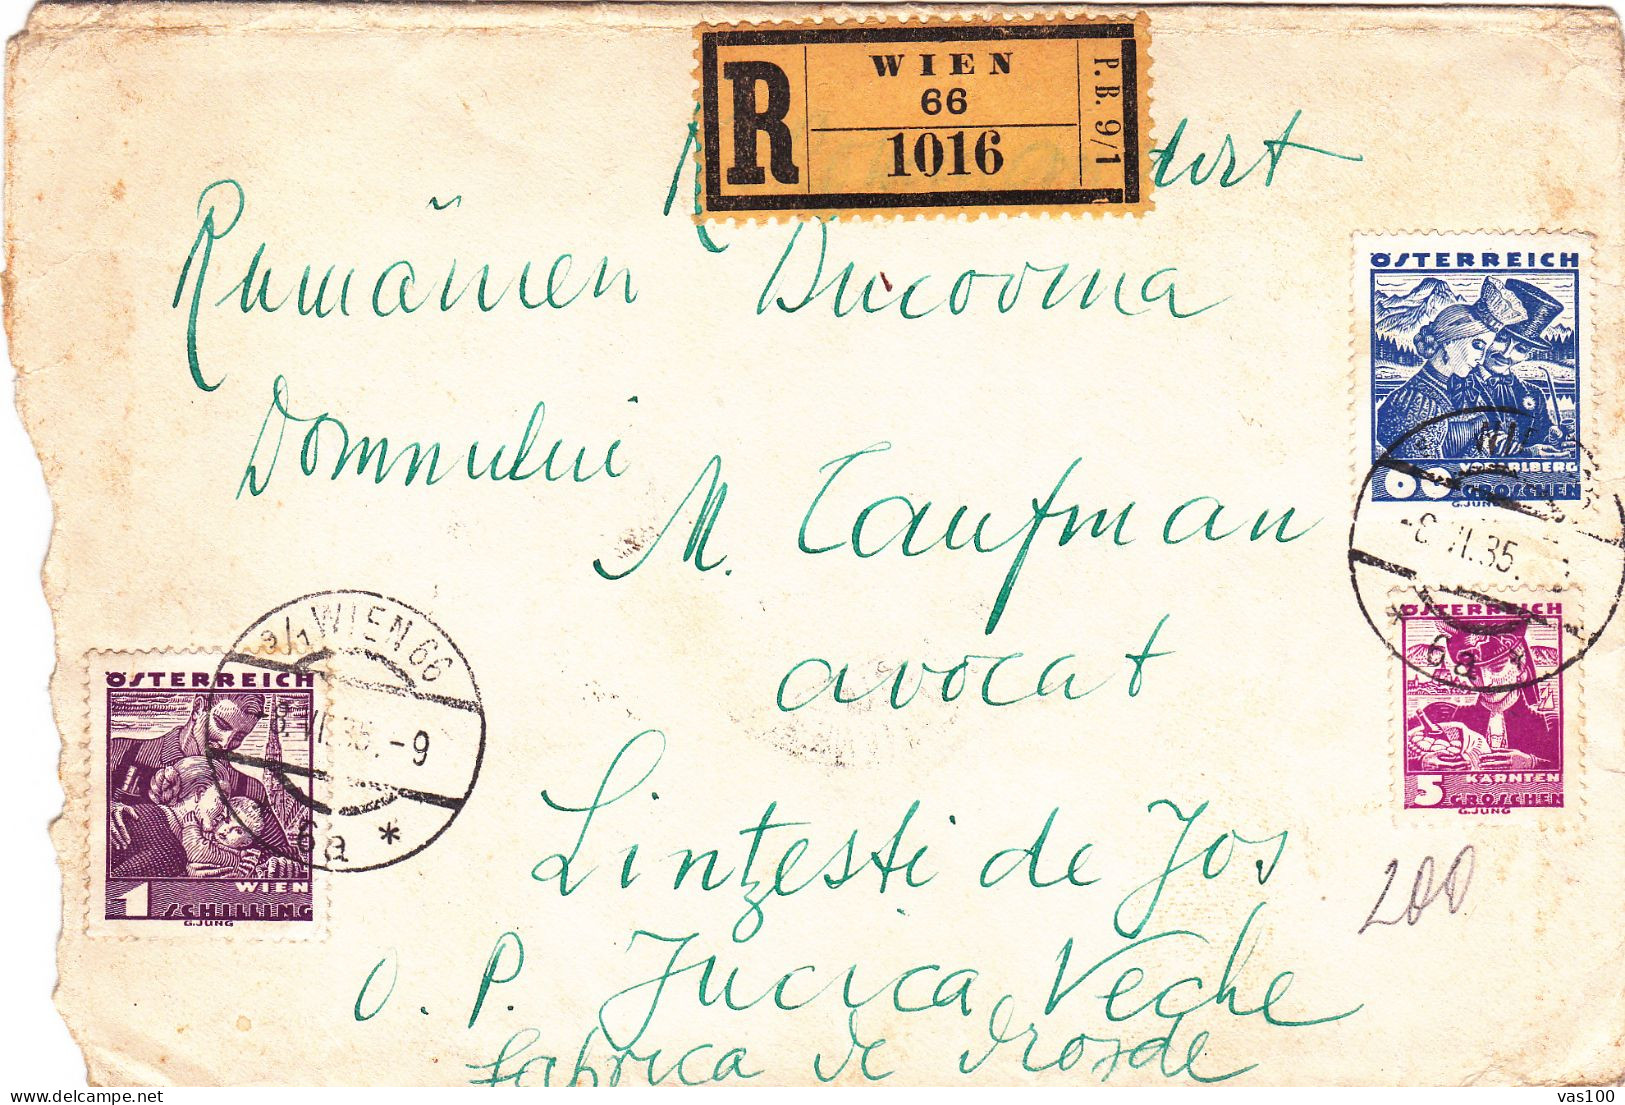 WIEN
66
R
1016
P. B. 9/1
Rumänien Bucovina
Domnului
M. Caufman
avocat
Lințesti de Jos
O. P. Jucica Veche
fabrica de drojde
ÖSTERREICH
VORARLBERG
60 GROSCHEN
G.JUNG
35.
6a
ÖSTERREICH
KÄRNTEN
5 GROSCHEN
G.JUNG
200
9/1 WIEN 66
-8.VII.35.-9
6a *
ÖSTERREICH
WIEN
1 SCHILLING
G.JUNG
delcampe.net
vas100